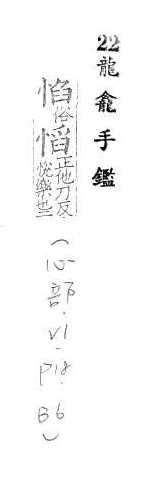 22 龍龕手鑑
㤘俗慆正他刀反悅樂也三
(心部.V1.P18.B6)